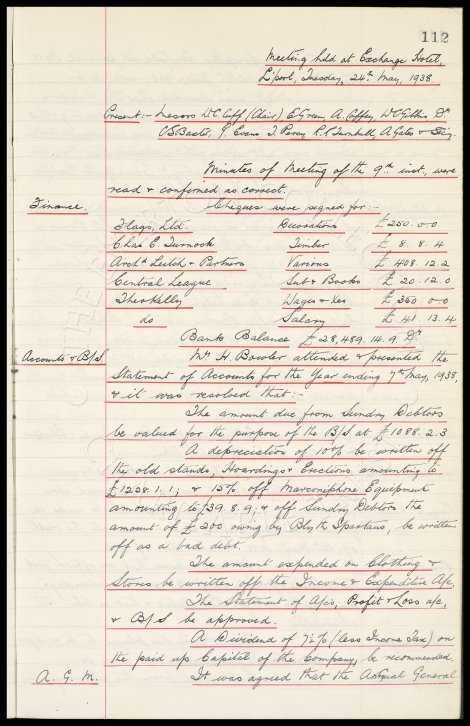 112
Meeting held at Exchange Hotel,
L'pool, Tuesday, 24th May, 1938
Present:- Messrs W.C. Cuff (Chair) E. Green, A. Coffey, W.C. Gibbins Dr
C.S. Baxter, J. Evans, T. Percy, R.R. Turnbull, A. Gates & Sec.
Minutes of Meeting of the 9th inst., were
read & confirmed as correct.
Finance. Cheques were signed for:-
Flags, Ltd. Decorations £250.0.0
Chas E. Turnock Timber £ 8.8.4
Archd Leitch & Partners Various £ 408.12.2
Central League Subs & Books £ 20.12.0
Theo Kelly Wages & Exs £ 360.0.0
do Salary £ 41.13.4
Bank Balance £28,489.14.9 Dr
Accounts & B/S. Mr H. Bowler attended & presented the
Statement of Accounts for the Year ending 7th May, 1938,
& it was resolved that:-
The amount due from Sundry Debtors
be valued for the purpose of the B/S at £1088.2.3
A depreciation of 10% be written off
the old stands, Hoardings & Erections amounting to
£1228.1.1; & 15% off Marconiphone Equipment
amounting to £39.8.9; & off Sundry Debtors the
amount of £200 owing by Blyth Spartans, be written
off as a bad debt.
The amount expended on Clothing &
Stores be written off the Income & Expenditure A/c.
The Statement of A/cs, Profit & Loss a/c,
& B/S be approved.
A Dividend of 7½% (less Income Tax) on
the paid up Capital of the Company, be recommended.
A. G. M. It was agreed that the Annual General